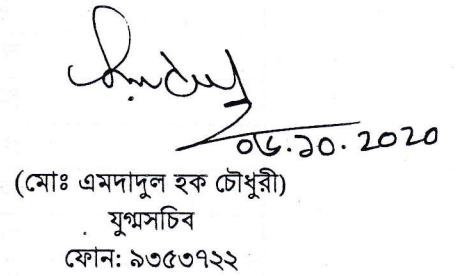 ০৬.১০.২০২০
(মোঃ এমদাদুল হক চৌধুরী)
যুগ্মসচিব
ফোন: ৯৩৫৩৭২২